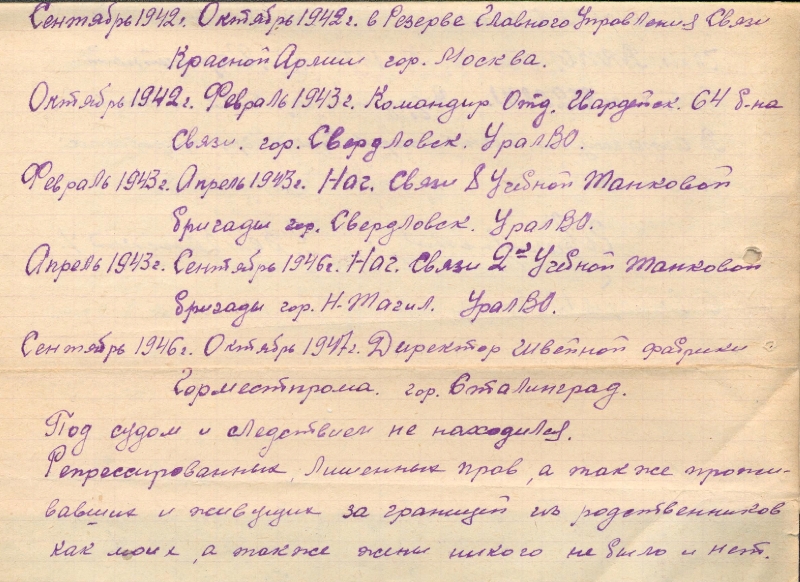 Сентябрь 1942г. Октябрь 1942г. в Резерве Главного Управления Связи
Красной Армии гор. Москва.
Октябрь 1942г. Февраль 1943г. Командир Отд. Гвардейск. 64 б-на
связи. гор. Свердловск. УралВО.
Февраль 1943г. Апрель 1943г. Нач. Связи 8 Учебной Танковой
бригады гор. Свердловск. УралВО.
Апрель 1943г. Сентябрь 1946г. Нач. Связи 2й Учебной Танковой
бригады гор. Н-Тагил. УралВО.
Сентябрь 1946г. Октябрь 1947г. Директор Швейной фабрики
Горместпрома. гор. Сталинград.
Под судом и следствием не находился.
Репрессированных, лишенных прав, а также прожи-
вавших и живущих за границей из родственников
как моих, а также жены никого не было и нет.